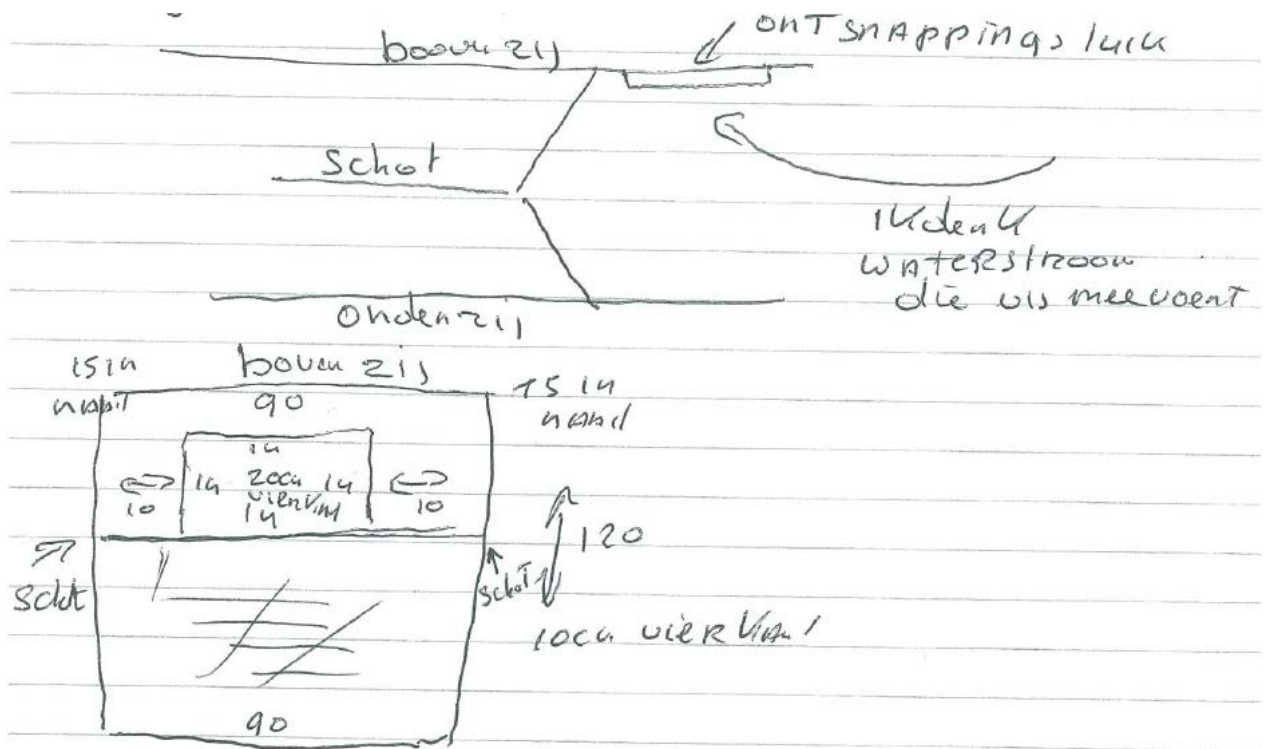 boven zij
ontsnappings luik
schot
ik denk
waterstroom
die vis meevoert
onderzij
15 in
naad
boven zij
15 in
naad
90
14
10
14
20cm
vierkant
14
10
14
120
schot
schot
10cm vierkant
90